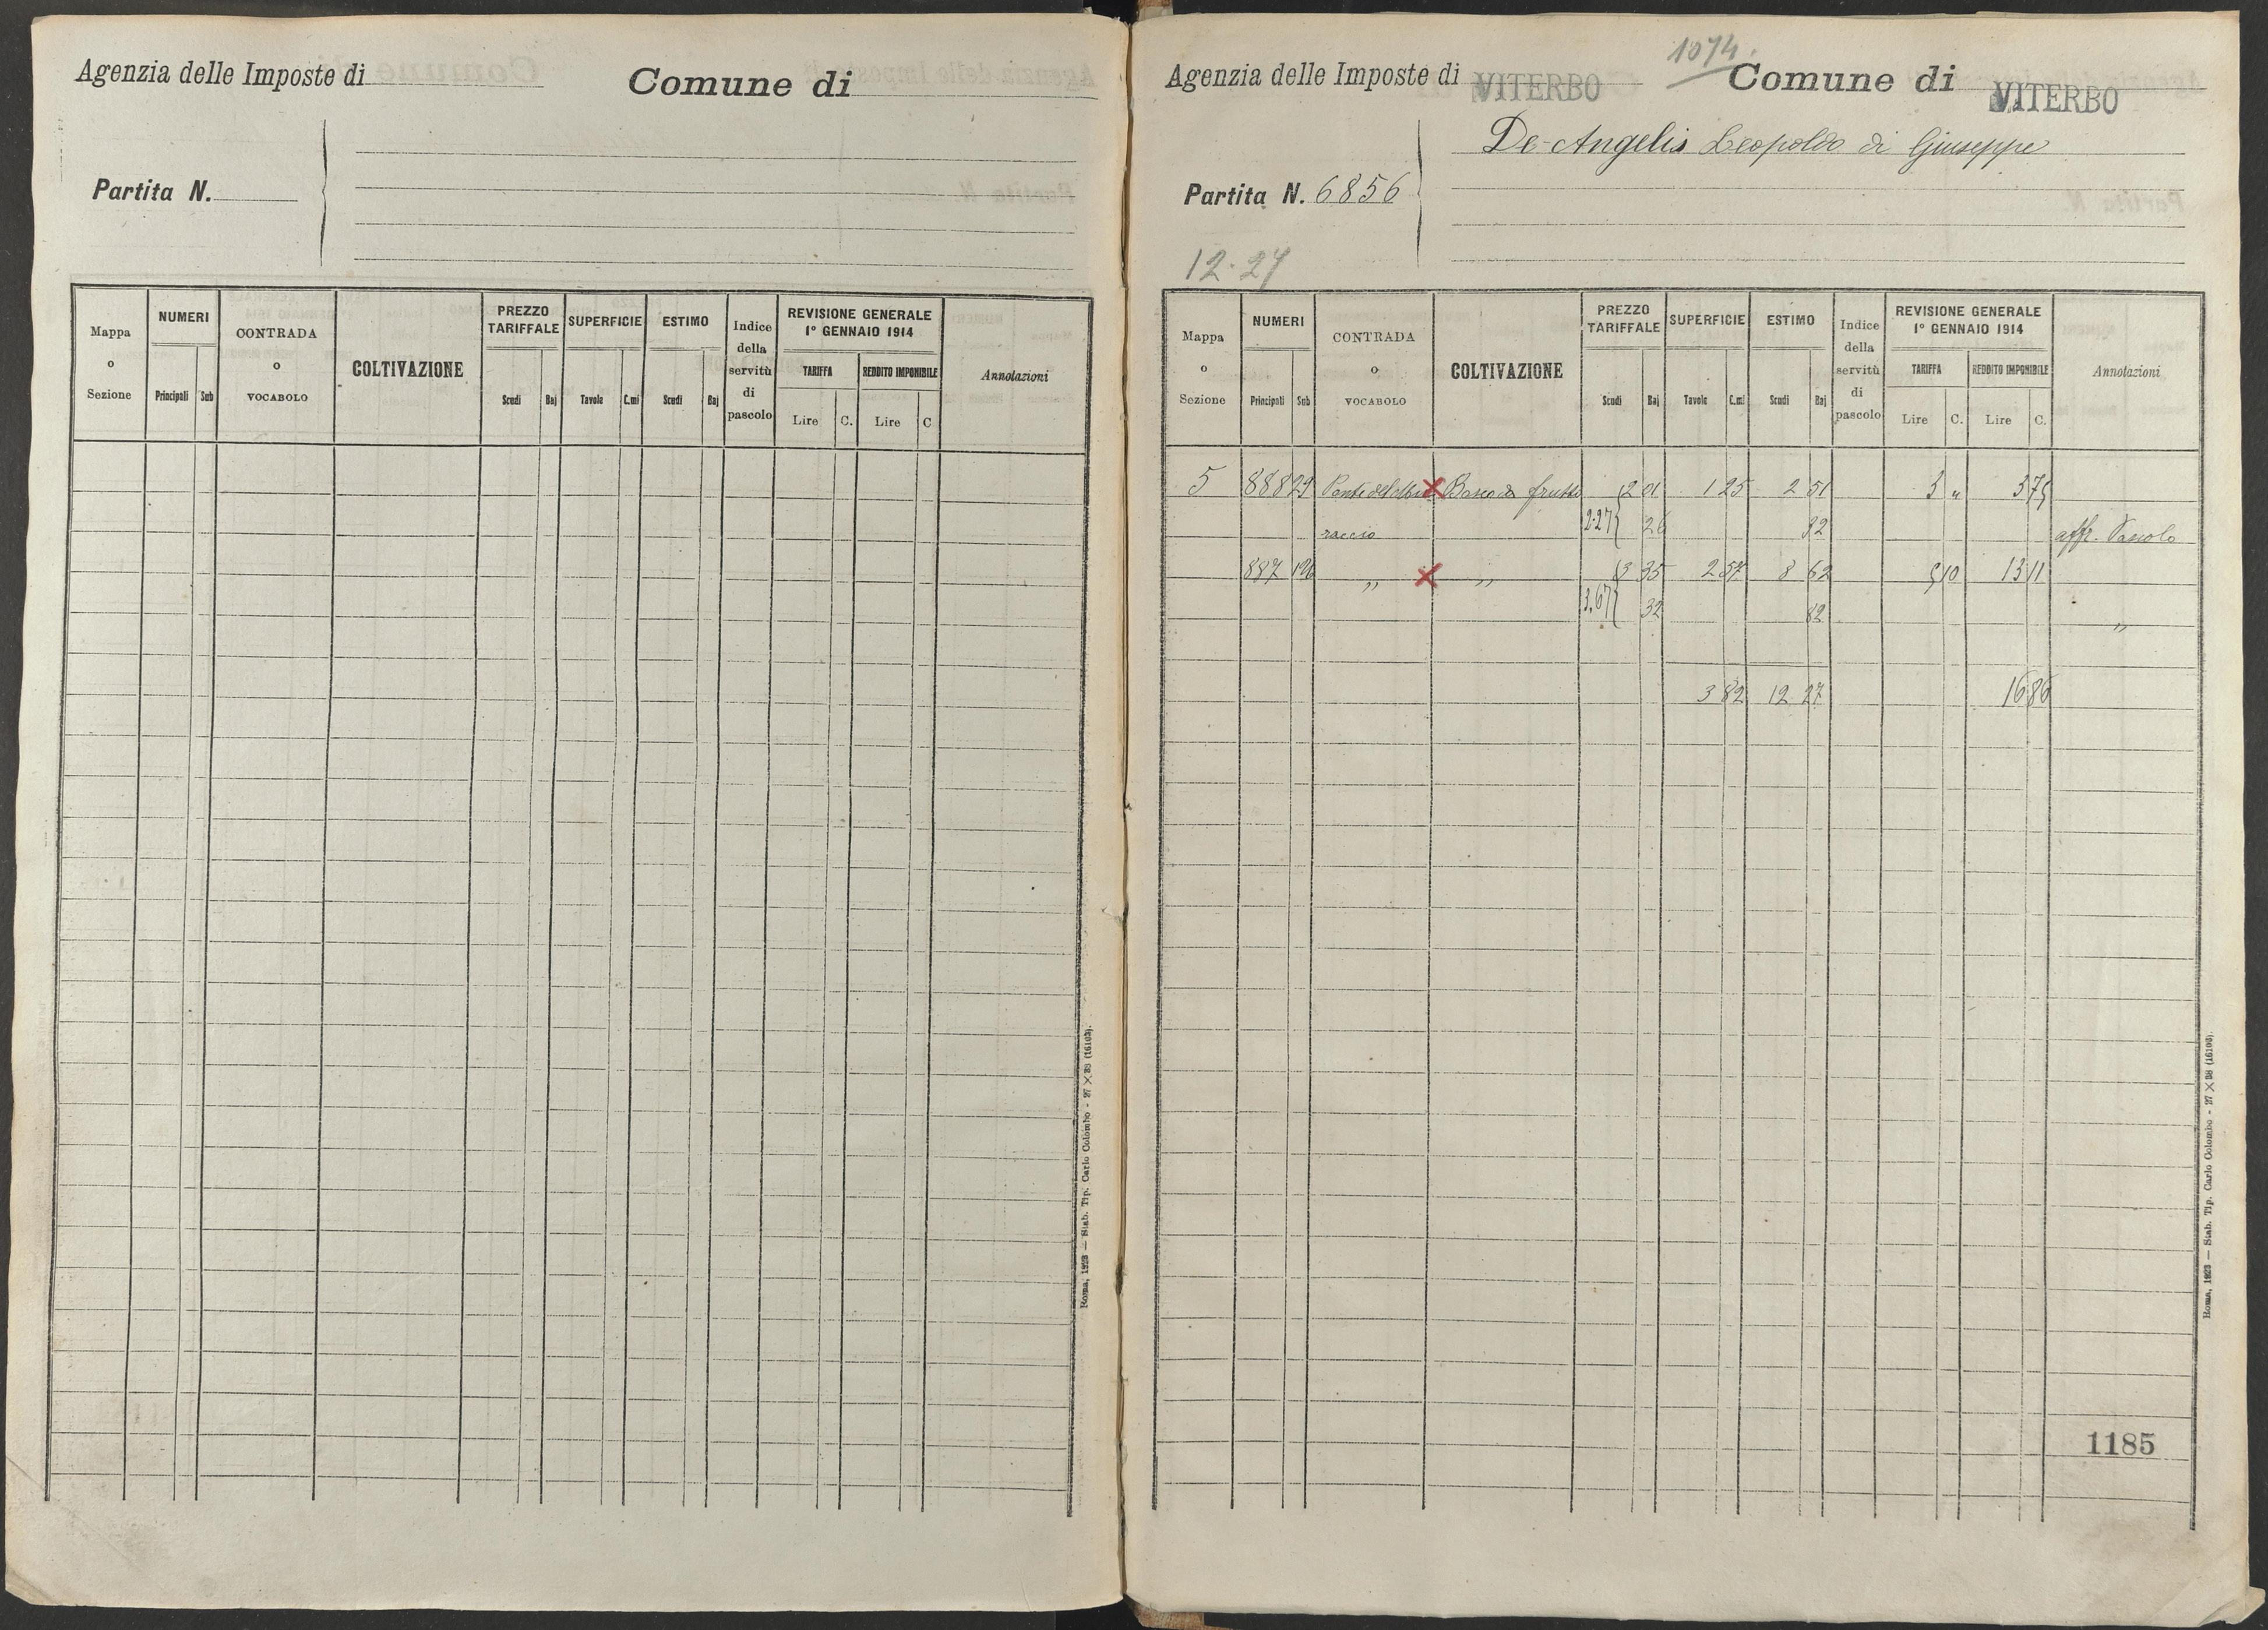 Agenzia delle Imposte di
Comune di
Partita N.
Mappa o Sezione
NUMERI
Principali Sub
CONTRADA o VOCABOLO
COLTIVAZIONE
PREZZO TARIFFALE
Scudi Baj
SUPERFICIE
Tavole C.mi
ESTIMO
Scudi Baj
Indice della servitù di pascolo
REVISIONE GENERALE
1° GENNAIO 1914
TARIFFA
Lire C.
REDDITO IMPONIBILE
Lire C
Annotazioni
Roma, 1923 — Stab. Tip. Carlo Colombo - 27 X 38 (16103).
1074.
Agenzia delle Imposte di VITERBO
Comune di VITERBO
De-Angelis Leopoldo di Giuseppe
Partita N. 6856
12.27
Mappa o Sezione
NUMERI
Principali Sub
CONTRADA o VOCABOLO
COLTIVAZIONE
PREZZO TARIFFALE
Scudi Baj
SUPERFICIE
Tavole C.mi
ESTIMO
Scudi Baj
Indice della servitù di pascolo
REVISIONE GENERALE
1° GENNAIO 1914
TARIFFA
Lire C.
REDDITO IMPONIBILE
Lire C.
Annotazioni
5 888 29 X Bosco da frutto 2 01 1 25 2 51 3 „ 3 75
raccio 2.27 26 32 affr. Pascolo
887 „ X „ 3 35 2 57 8 62 5 10 13 11
3.67 32 82 „
3 82 12 27 16 86
1185
Roma, 1923 — Stab. Tip. Carlo Colombo - 27 X 38 (16103).